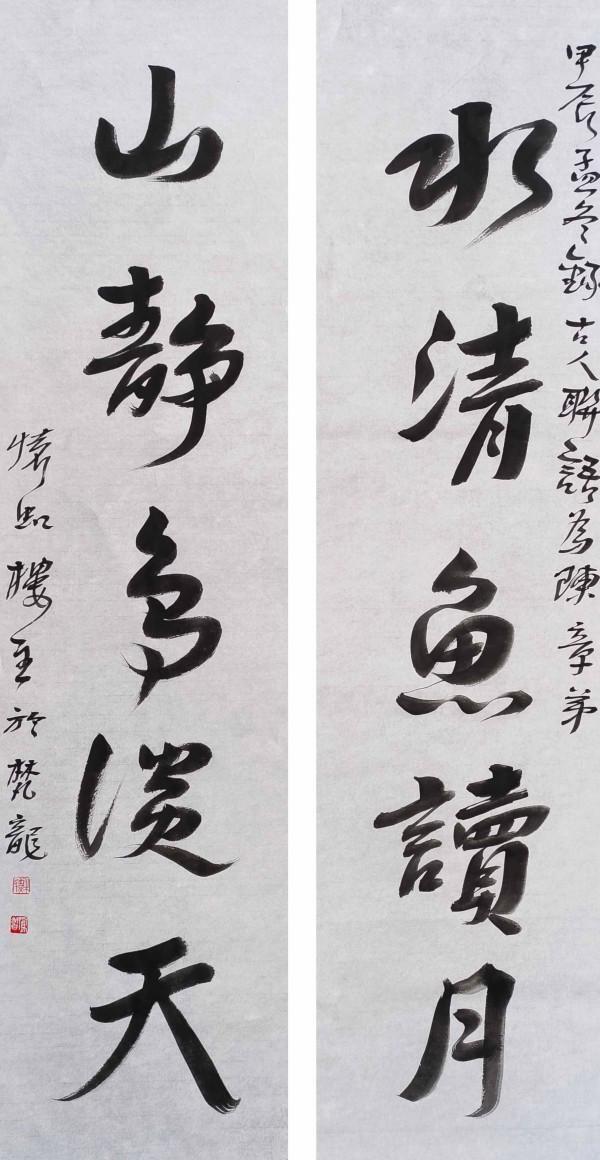 甲辰孟冬錄古人聯語為陳章弟
水清魚讀月
山靜鳥談天
樓主於梵龍